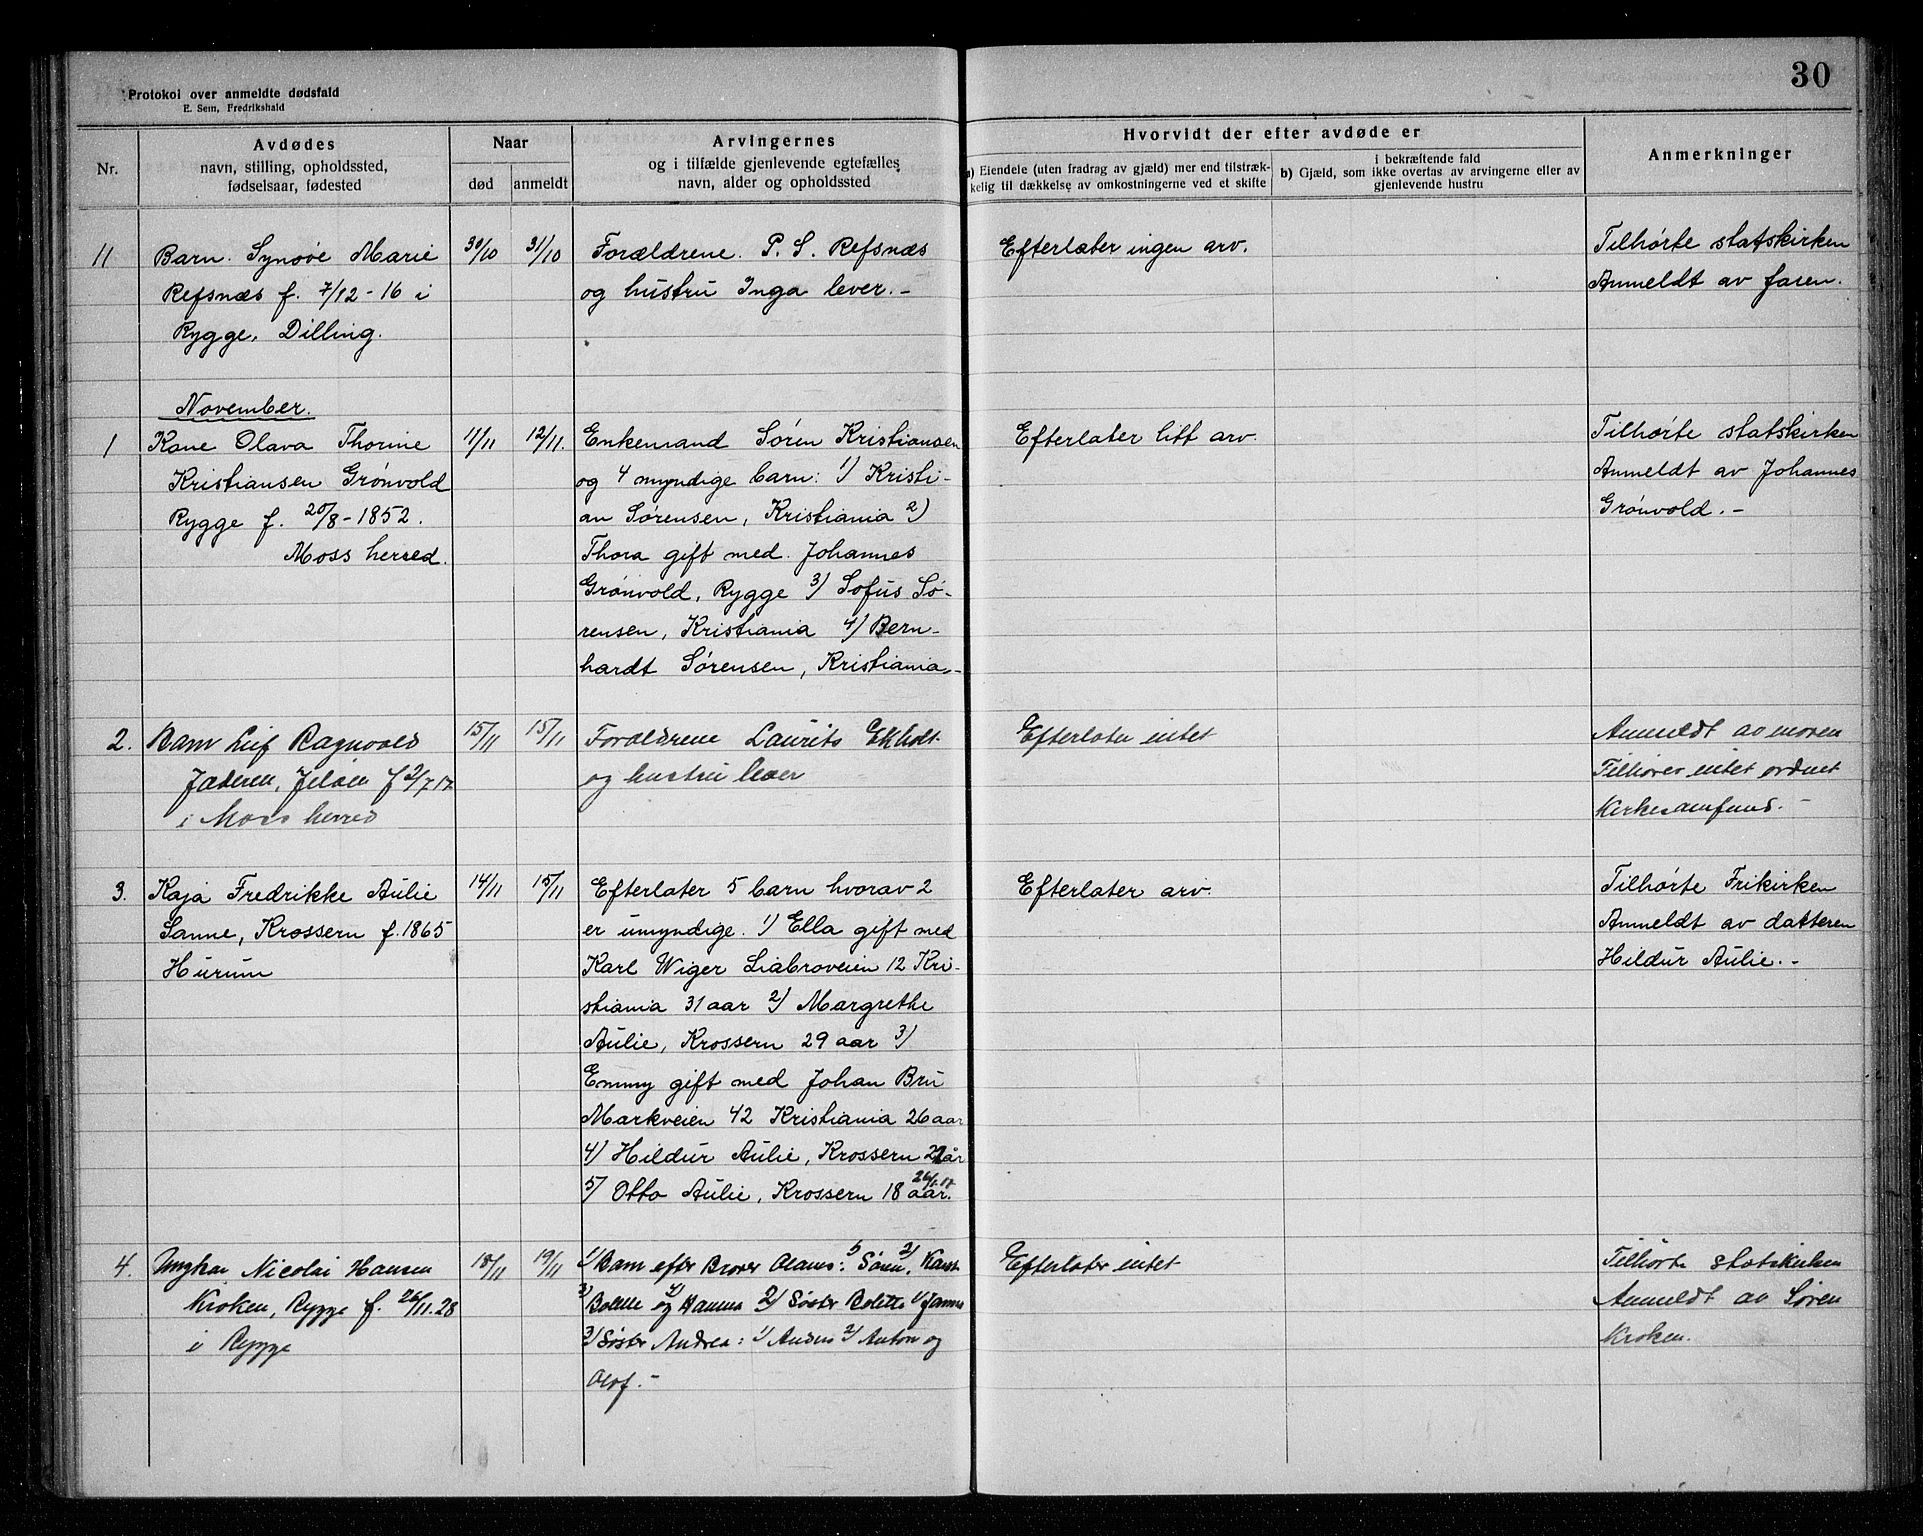 Protokol over anmeldte dødsfald
E. Sem, Fredrikshald
30
Nr.
Avdødes
navn, stilling, opholdssted,
fødselsaar, fødested
Naar
død
anmeldt
Arvingernes
og i tilfælde gjenlevende egtefælles
navn, alder og opholdssted
Hvorvidt der efter avdøde er
a) Eiendele (uten fradrag av gjæld) mer end tilstræk-
kelig til dækkelse av omkostningerne ved et skifte
i bekræftende fald
b) Gjæld, som ikke overtas av arvingerne eller av
gjenlevende hustru
Anmerkninger
11
Barn. Synøve Marie
Refsnæs f. 7/12-16 i
Rygge, Dilling.
30/10
31/10
Forældrene. P. S. Refsnæs
og hustru Inga lever.-
Efterlater ingen arv.
Tilhørte statskirken
Anmeldt av faren.
November.
1
Kone Olava Thorine
Kristiansen Grønvold
Rygge f. 20/8-1852.
Moss herred.
11/11
12/11.
Enkemand Søren Kristiansen
og 4 myndige barn: 1) Kristi-
an Sørensen, Kristiania 2)
Thora gift med Johannes
Grønvold, Rygge 3) Sofus Sø-
rensen, Kristiania 4) Bern-
hardt Sørensen, Kristiania.-
Efterlater litt arv.
Tilhørte statskirken
Anmeldt av Johannes
Grønvold.-
2.
Barn Leif Ragnvald
Jæderen, Jeløen f 2/7 17
i Moss herred
15/11
15/11
Forældrene Laurits Ekholt
og hustru lever
Efterlater intet
Anmeldt av moren
Tilhører intet ordnet
Kirkesamfund.-
3.
Kaja Fredrikke Aulie
Sanne, Krossern f. 1865
Hurum
14/11
15/11
Efterlater 5 barn hvorav 2
er umyndige. 1) Ella gift med
Karl Wiger Liabroveien 12 Kri-
stiania 31 aar 2) Margrethe
Aulie, Krossern 29 aar 3)
Emmy gift med Johan Bru
Markveien 42 Kristiania 26 aar
4) Hildur Aulie, Krossern 21 år
5) Otto Aulie, Krossern 18 aar.
Efterlater arv.
Tilhørte Frikirken
Anmeldt av datteren
Hildur Aulie.-
4.
Ungkar Nicolai Hansen
Kroken, Rygge f. 26/11.28
i Rygge
18/11
19/11
1) Barn efter Brorer Olaus: 1) Søren, 2)
3) Bolette og 4) Hanna 2) Søster Bolette 1)
3) Søster Andrea: 1) 2) Anton og
Olof.-
Efterlater intet
Tilhørte statskirken
Anmeldt av Søren
Kroken.